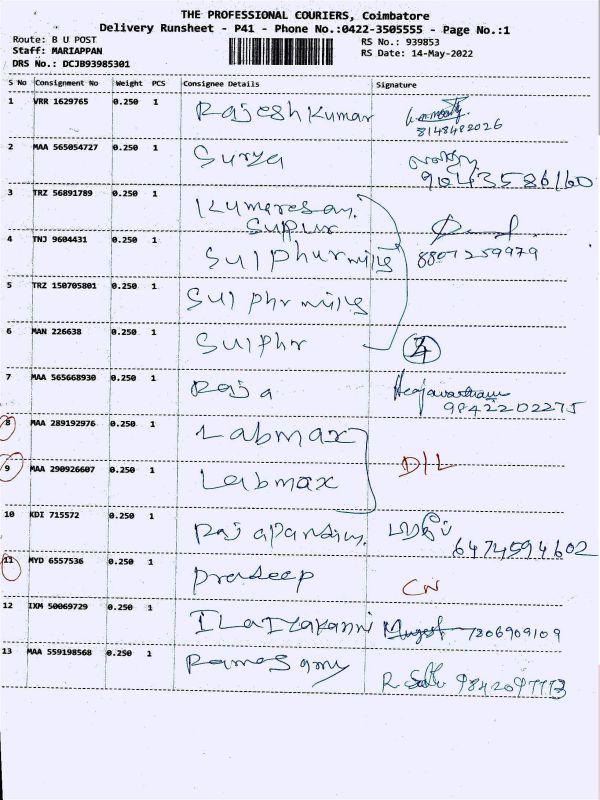 THE PROFESSIONAL COURIERS, Coimbatore
Delivery Runsheet - P41 - Phone No.:0422-3505555 - Page No.:1
Route: B U POST
RS No.: 939853
Staff: MARIAPPAN
RS Date: 14-May-2022
DRS No.: DCJB93985301
S No Consignment No Weight PCS Consignee Details Signature
1 VRR 1629765 0.250 1 Rajesh Kumar
8148482026
2 MAA 565054727 0.250 1 Surya
3 TRZ 56891789 0.250 1 Kumaresan.
4 TNJ 9604431 0.250 1 Sulphurmills 8807259979
5 TRZ 150705801 0.250 1 Sulphrmills
6 MAN 226638 0.250 1 Sulphr 4
7 MAA 565668930 0.250 1 Raja
9842202275
8 MAA 289192976 0.250 1 Labmax
D/L
9 MAA 290926607 0.250 1 Labmax
10 KDI 715572 0.250 1 Rajapandian.
6474594602
11 MYD 6557536 0.250 1 Pradeep CN
12 IXM 50069729 0.250 1 ILaIyakanni 7806909109
13 MAA 559198568 0.250 1 Ramasamy